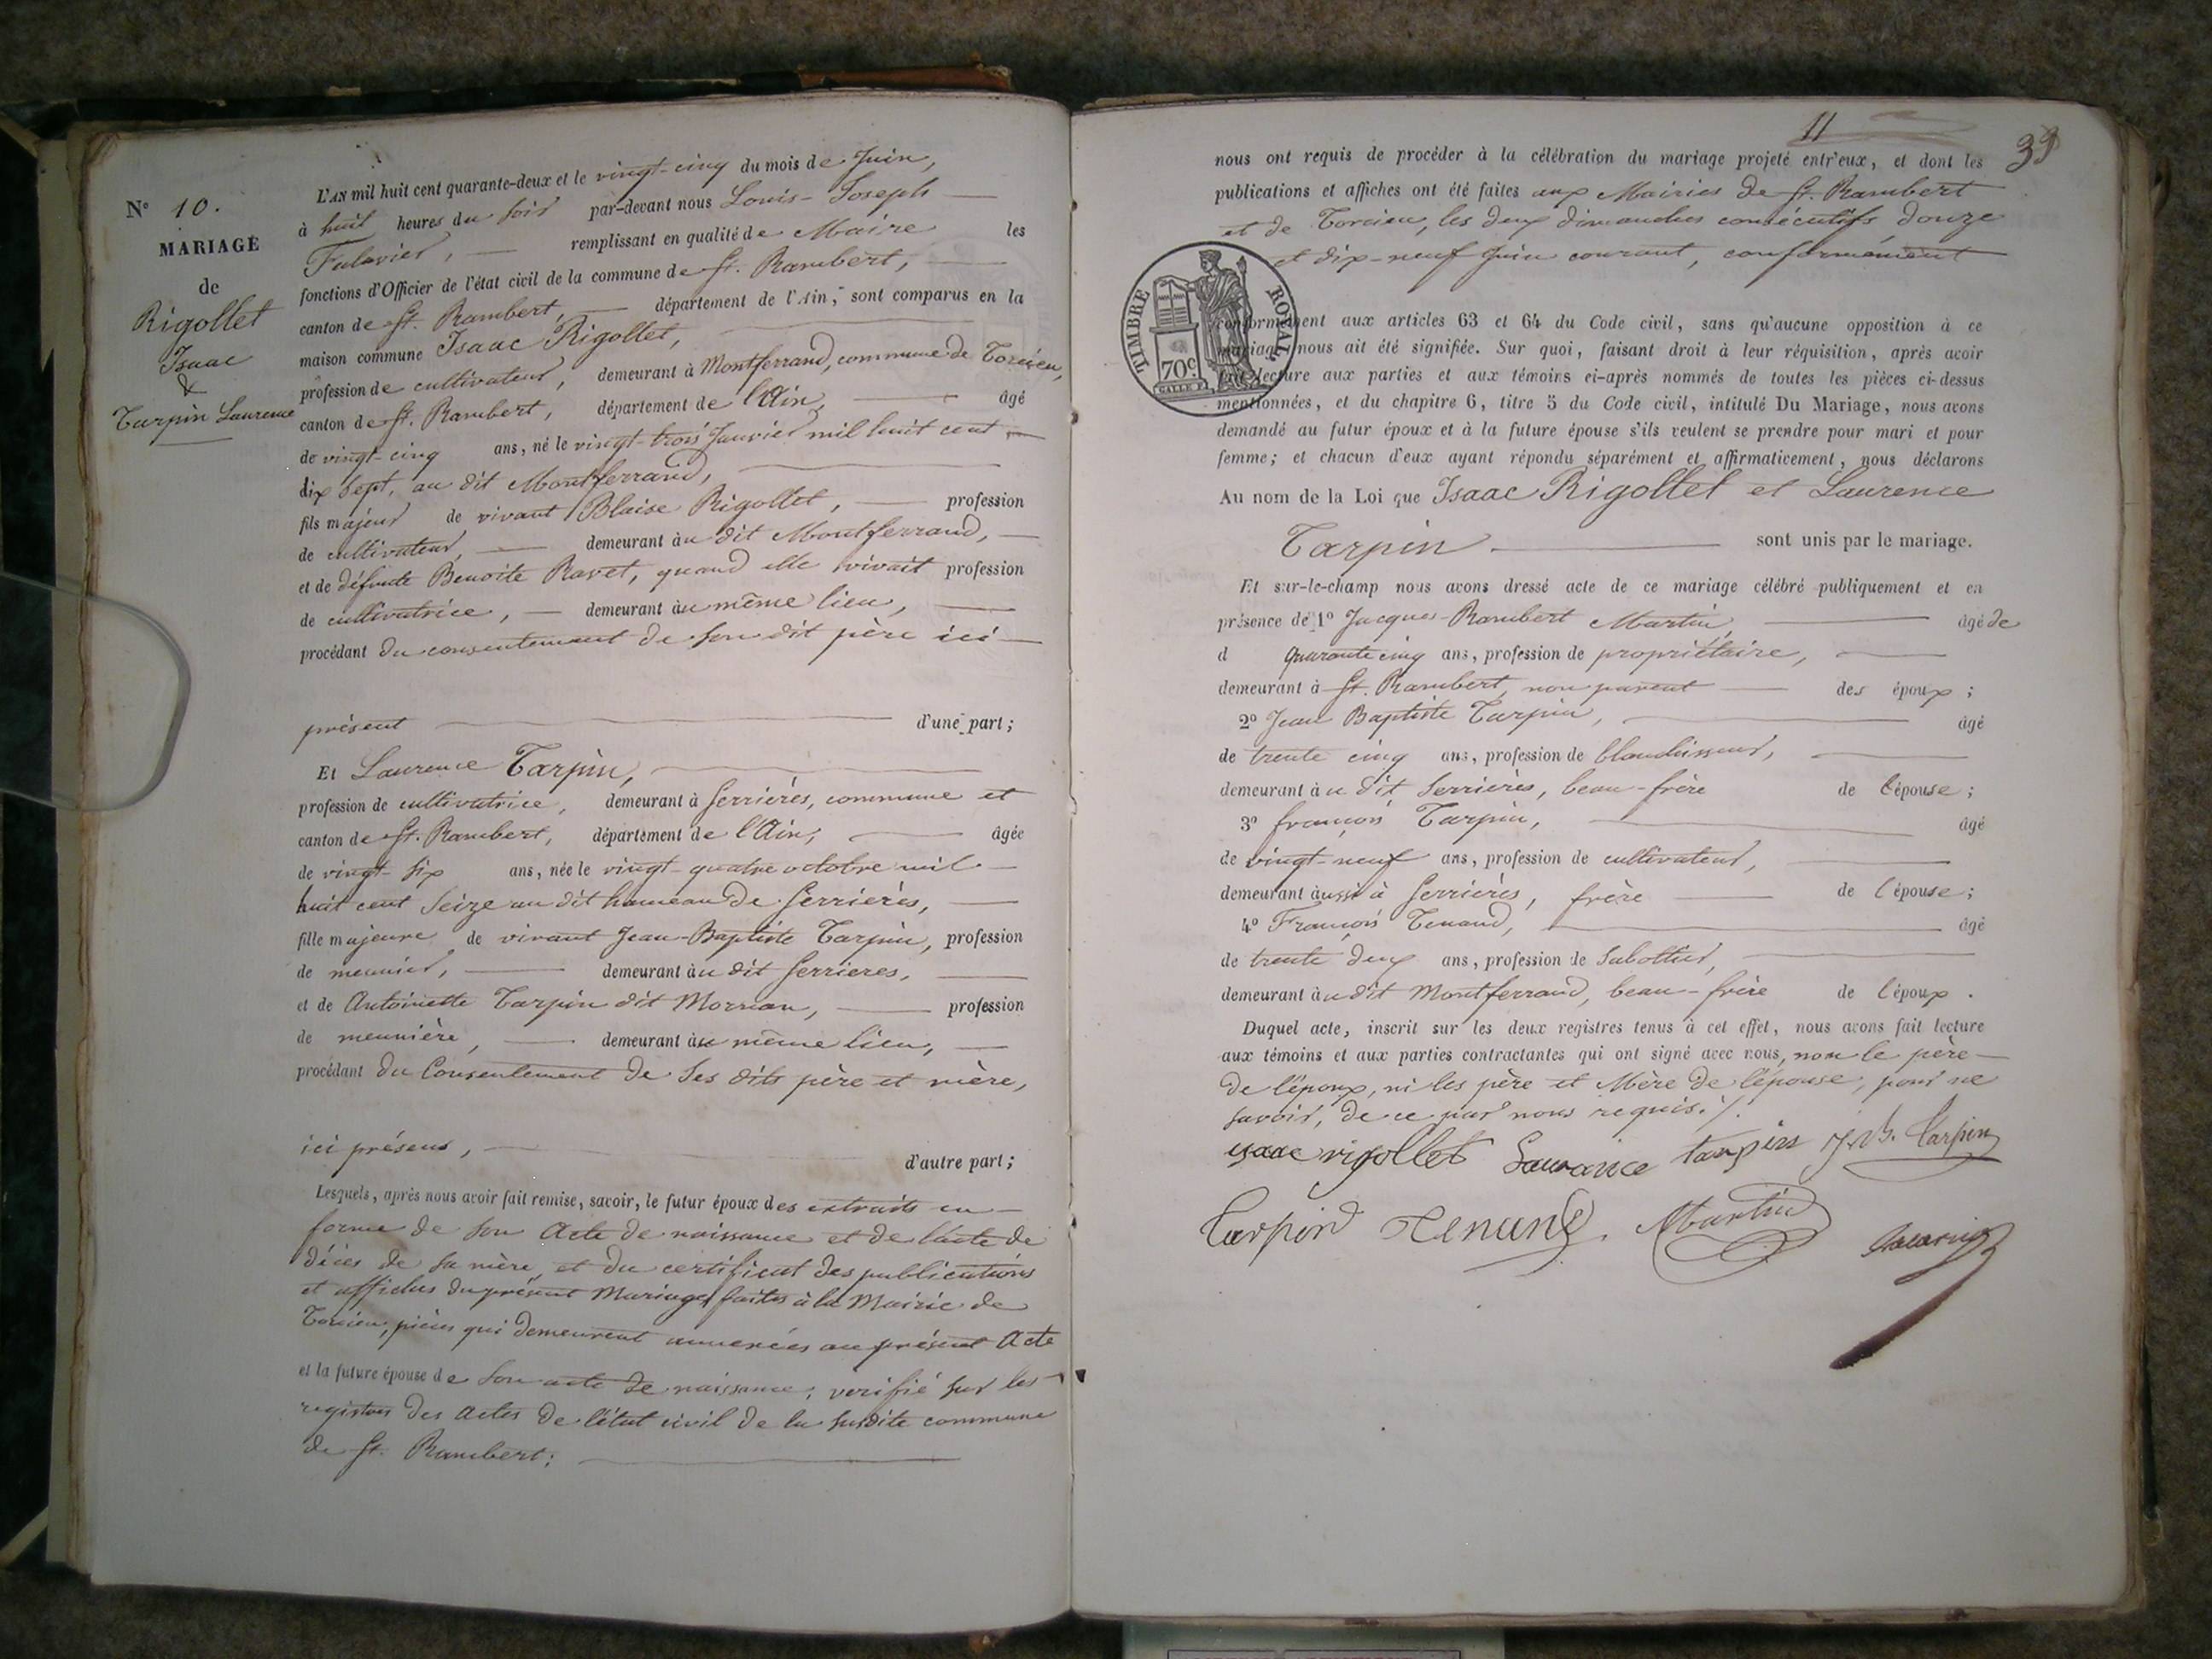 N° 10.
MARIAGE
de
Rigollet
Isaac
&
Tarpin Laurence
L'AN mil huit cent quarante-deux et le vingt-cinq du mois de Juin,
à huit heures du soir par-devant nous Louis-Joseph
remplissant en qualité de Maire les
fonctions d'Officier de l'état civil de la commune de St. Rambert,
canton de St. Rambert, département de l'Ain, sont comparus en la
maison commune Isaac Rigollet,
profession de cultivateur, demeurant à Montferrand, commune de Torcieu,
canton de St. Rambert, département de l'Ain, âgé
de vingt-cinq ans, né le vingt-trois Janvier mil huit cent
dix sept, au dit Montferrand,
fils majeur de vivant Blaise Rigollet, profession
de cultivateur, demeurant au dit Montferrand,
et de défunte Benoite Ravet, quand elle vivait profession
de cultivatrice, demeurant au même lieu,
procédant du consentement de son dit père ici
présent d'une part;
Et Laurence Tarpin,
profession de cultivatrice, demeurant à Serrières, commune et
canton de St. Rambert, département de l'Ain, âgée
de vingt-six ans, née le vingt-quatre octobre mil
huit cent seize au dit hameau de Serrières,
fille majeure de vivant Jean-Baptiste Tarpin, profession
de meunier, demeurant au dit Serrieres,
et de Antoinette Tarpin dit Mornan, profession
de meunière, demeurant au même lieu,
procédant du Consentement de ses dits père et mère,
ici présens, d'autre part;
Lesquels, après nous avoir fait remise, savoir, le futur époux des extraits en
forme de son Acte de naissance et de l'acte de
décès de sa mère, et du certificat des publications
et affiches du présent Mariage, faites à la Mairie de
Torcieu, pièces qui demeurent annexées au présent Acte
et la future épouse de son acte de naissance, verifié sur les
registres des Actes de l'état civil de la susdite commune
de St. Rambert;
11
39
nous ont requis de procéder à la célébration du mariage projeté entr'eux, et dont les
publications et affiches ont été faites aux Mairies de St. Rambert
et de Torcieu, les deux dimanches consécutifs douze
et dix-neuf Juin courant, conformément
TIMBRE ROYAL
70c
conformément aux articles 63 et 64 du Code civil, sans qu'aucune opposition à ce
mariage nous ait été signifiée. Sur quoi, faisant droit à leur réquisition, après avoir
fait lecture aux parties et aux témoins ci-après nommés de toutes les pièces ci-dessus
mentionnées, et du chapitre 6, titre 5 du Code civil, intitulé Du Mariage, nous avons
demandé au futur époux et à la future épouse s'ils veulent se prendre pour mari et pour
femme; et chacun d'eux ayant répondu séparément et affirmativement, nous déclarons
Au nom de la Loi que Isaac Rigollet et Laurence
Tarpin sont unis par le mariage.
Et sur-le-champ nous avons dressé acte de ce mariage célébré publiquement et en
présence de 1° Jacques Rambert Martin, âgé de
d quarante cinq ans, profession de propriétaire,
demeurant à St. Rambert, non parent des époux;
2° Jean Baptiste Tarpin, âgé
de trente cinq ans, profession de blanchisseur,
demeurant au dit Serrières, beau-frère de l'épouse;
3° françois Tarpin, âgé
de vingt-neuf ans, profession de cultivateur,
demeurant aussi à Serrières, frère de l'épouse;
4° François Tenand, âgé
de trente deux ans, profession de Sabottier,
demeurant au dit Montferrand, beau-frère de l'époux.
Duquel acte, inscrit sur les deux registres tenus à cet effet, nous avons fait lecture
aux témoins et aux parties contractantes qui ont signé avec nous, non le père
de l'époux, ni les père et Mère de l'épouse, pour ne
savoir, de ce par nous requis./.
isaac rigollet Laurance tarpin J. B. Tarpin
Tarpin Tenand Martin